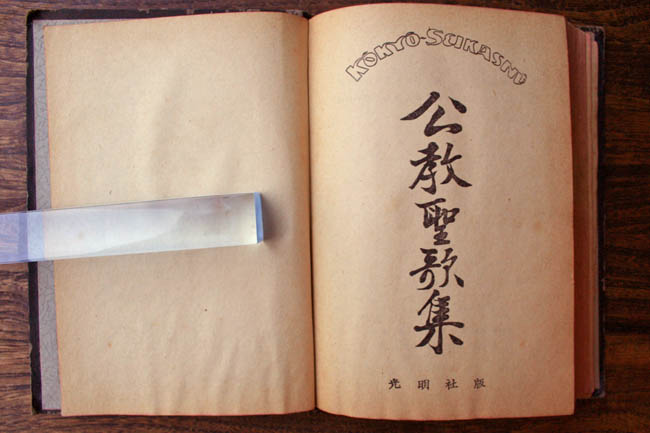 KŌKYŌ-SEIKASHŪ
公教聖歌集
光明社版